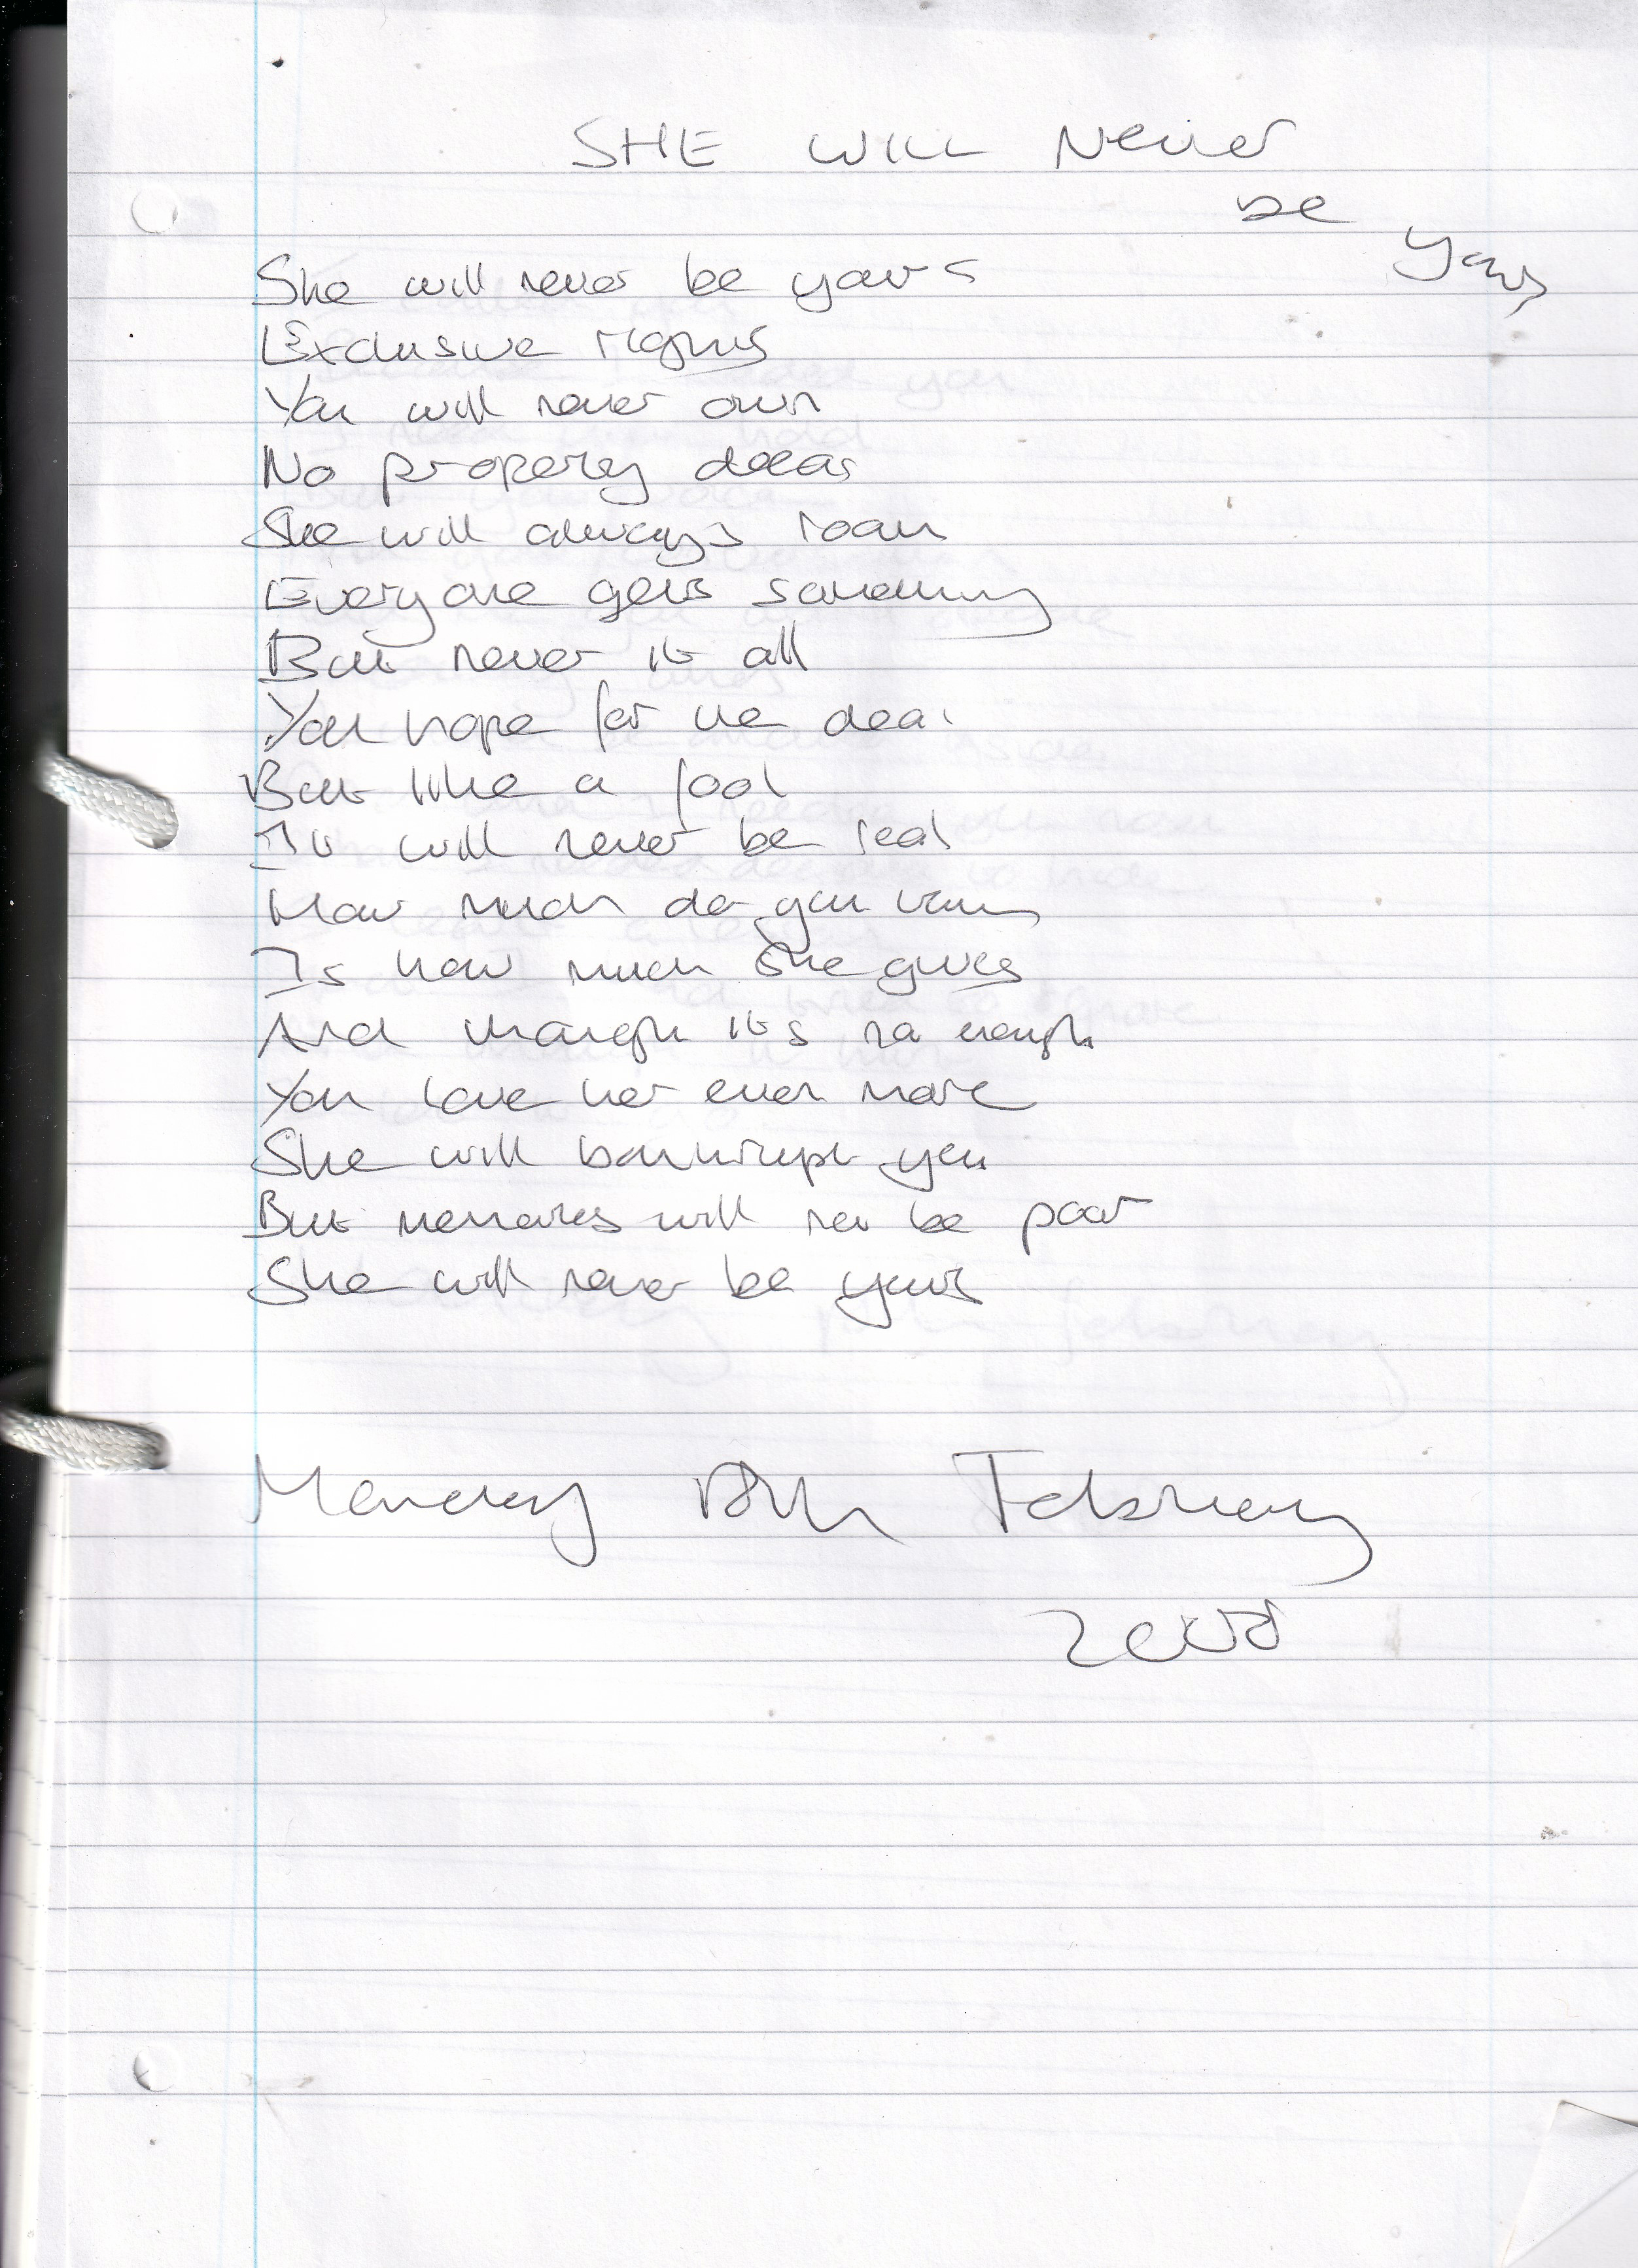 SHE WILL Never
be
yours
She will never be yours
Exclusive rights
You will never own
No property deeds
She will always roam
Everyone gets something
But never it all
You hope for the deal
But like a fool
It will never be real
How much do you want
Is how much she gives
And though its no enough
You love her even more
She will bankrupt you
But memories will not be poor
She will never be yours
Monday 18th February
2008